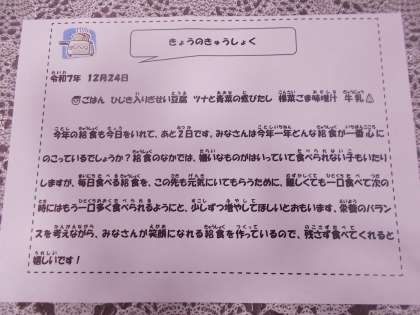 きょうのきゅうしょく
令和7年 12月24日
ごはん ひじき入りぎせい豆腐 ツナと青菜の煮びたし 根菜ごま味噌汁 牛乳
今年の給食も今日をいれて、あと2日です。みなさんは今年一年どんな給食が一番心に
のこっているでしょうか?給食のなかでは、嫌いなものがはいっていて食べられない子もいたり
しますが、毎日食べる給食を、この先も元気にいてもらうために、難しくても一口食べて次の
時にはもう一口多く食べられるようにと、少しずつ増やしてほしいとおもいます。栄養のバラン
スを考えながら、みなさんが笑顔になれる給食を作っているので、残さず食べてくれると
嬉しいです!